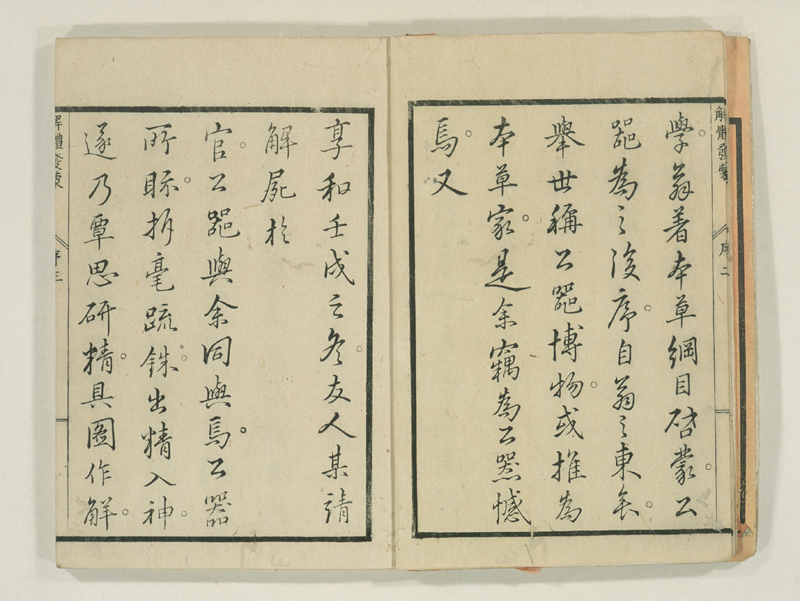 解體發蒙 序二
學。翁着本草綱目啓蒙。公
噐為之後序。自翁之東矣。
擧世稱公噐博物。或推為
本草家。是余竊為公噐憾
焉又
享和壬戌之冬。友人某請
解屍於
官。公噐與余同與焉。公器
所眎。析毫疏銖。出精入神。
遂乃覃思研精。具圖作解。
解體發蒙 序三